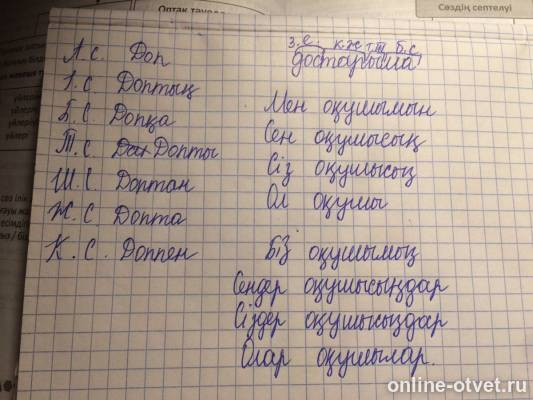 Сөздің септелуі
А.С. Доп
І.С. Доптың
Б.С. Допқа
Т.С. Допты
Ш.С. Доптан
Ж.С. Допта
К.С. Доппен
з.е к.ж т.ш б.с
достарыңызға
Мен оқушымын
Сен оқушысың
Сіз оқушысыз
Ол оқушы
Біз оқушымыз
Сендер оқушысыңдар
Сіздер оқушысыздар
Олар оқушылар.
online-otvet.ru